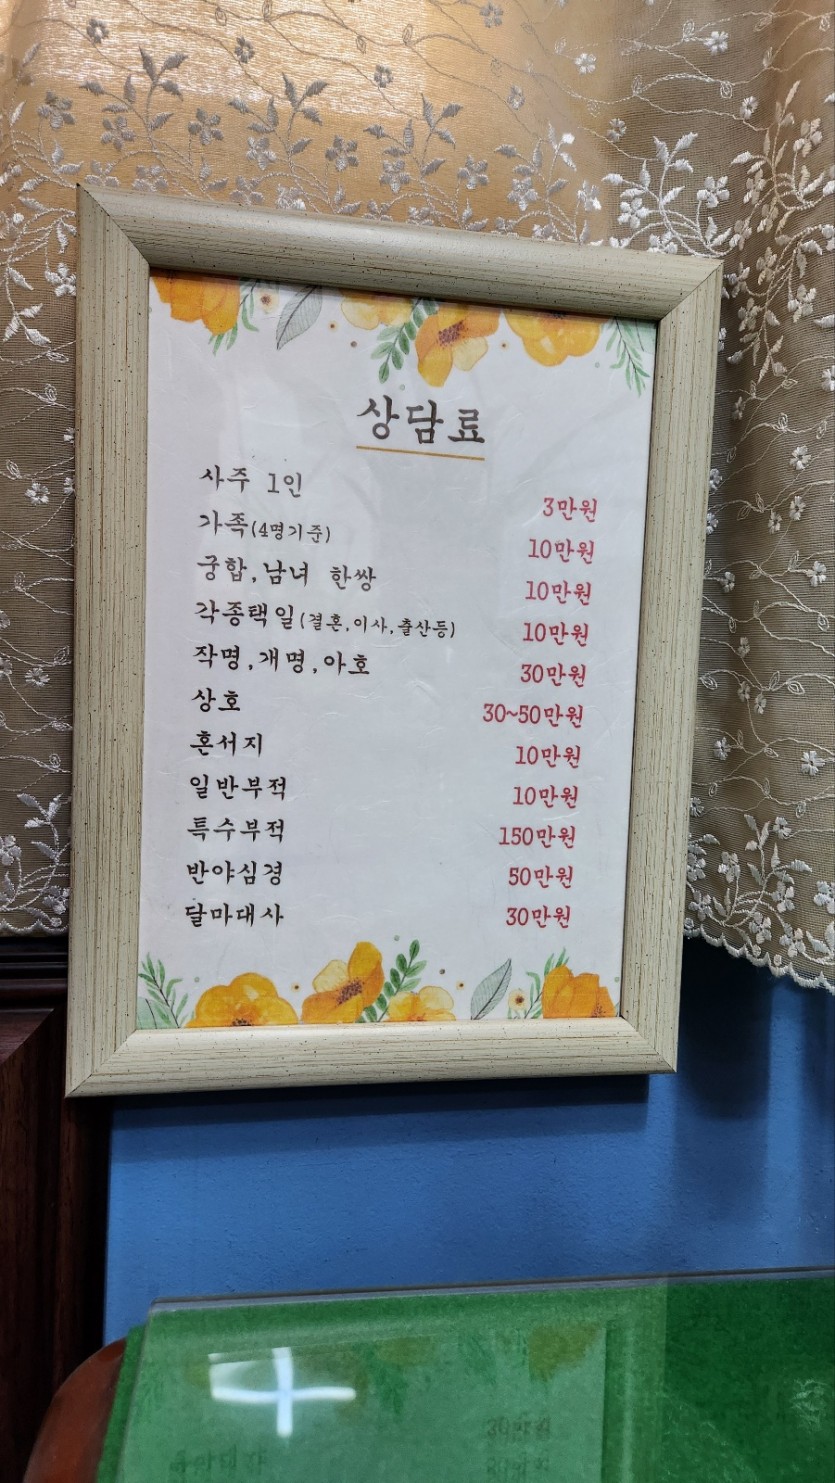 상담료
사주 1인 3만원
가족(4명기준) 10만원
궁합,남녀 한쌍 10만원
각종택일(결혼,이사,출산등) 10만원
작명,개명,아호 30만원
상호 30~50만원
혼서지 10만원
일반부적 10만원
특수부적 150만원
반야심경 50만원
달마대사 30만원